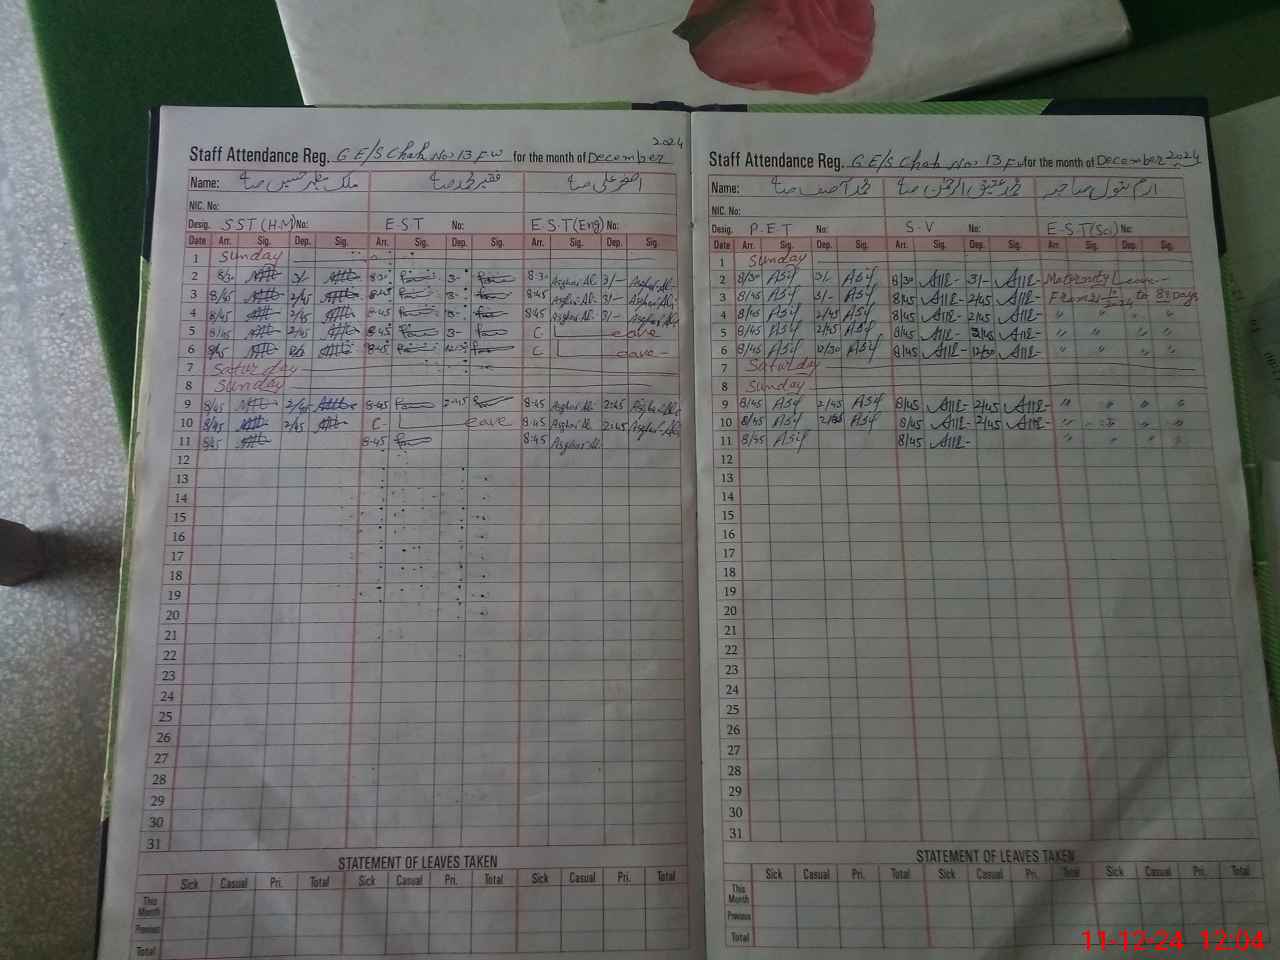 Staff Attendance Reg. G E/S Chah No. 13 FW for the month of December 2024
Name: ملک مظہر حسین صاحب فقیر محمد صاحب اصغر علی صاحب
NIC. No:
Desig. SST (H.M) No: E.S.T No: E.S.T (Eng) No:
Date Arr. Sig. Dep. Sig. Arr. Sig. Dep. Sig. Arr. Sig. Dep. Sig.
1 Sunday
2 8/30 3/- 8.30 3- 8.30 Asghar Ali 3/- Asghar Ali
3 8/45 2/45 8.45 3- 8.45 Asghar Ali 3/- Asghar Ali
4 8/45 2/45 8.45 3- 8.45 Asghar Ali 3/- Asghar Ali
5 8/45 2/45 8.45 3- C Leave
6 8/45 8.45 C Leave
7 Saturday
8 Sunday
9 8/45 2/45 8.45 2.45 8.45 Asghar Ali 2.45 Asghar Ali
10 8/45 2/45 C Leave 8.45 Asghar Ali 2.45 Asghar Ali
11 8/45 8.45 8.45 Asghar Ali
12
13
14
15
16
17
18
19
20
21
22
23
24
25
26
27
28
29
30
31
STATEMENT OF LEAVES TAKEN
Sick Casual Pri. Total Sick Casual Pri. Total Sick Casual Pri. Total
This Month
Previous
Total
Staff Attendance Reg. G E/S Chah No. 13 FW for the month of December 2024
Name: محمد آصف صاحب محمد عتیق الرحمن صاحب ارم بتول صاحبہ
NIC. No:
Desig. P.E.T No: S.V No: E.S.T (Sci) No:
Date Arr. Sig. Dep. Sig. Arr. Sig. Dep. Sig. Arr. Sig. Dep. Sig.
1 Sunday
2 8/30 Asif 3/- Asif 8/30 3/- Maternity Leave
3 8/45 Asif 3/- Asif 8/45 2/45 From to Days
4 8/45 Asif 2/45 Asif 8/45 2/45 " " " "
5 8/45 Asif 2/45 Asif 8/45 2/45 " " " "
6 8/45 Asif 12/30 Asif 8/45 12/30 " " " "
7 Saturday
8 Sunday
9 8/45 Asif 2/45 Asif 8/45 2/45 " " " "
10 8/45 Asif 2/45 Asif 8/45 2/45 " " " "
11 8/45 Asif 8/45 " " " "
12
13
14
15
16
17
18
19
20
21
22
23
24
25
26
27
28
29
30
31
STATEMENT OF LEAVES TAKEN
Sick Casual Pri. Total Sick Casual Pri. Total Sick Casual Pri. Total
This Month
Previous
Total
11-12-24 12:04